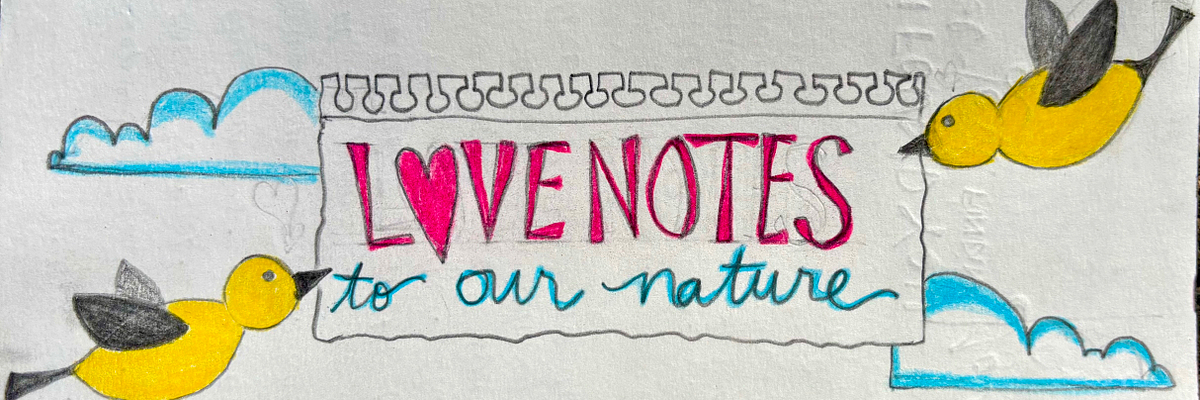 LOVE NOTES
to our nature